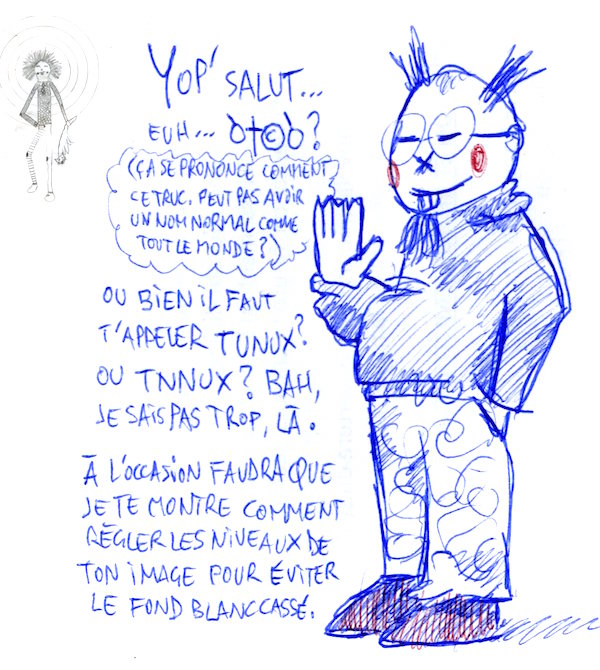 YOP' SALUT...
EUH... ò†©ò?
(ÇA SE PRONONCE COMMENT
CE TRUC. PEUT PAS AVOIR
UN NOM NORMAL COMME
TOUT LE MONDE?)
OU BIEN IL FAUT
T'APPELER TUNUX?
OU TNNUX? BAH,
JE SAIS PAS TROP, LÀ.
À L'OCCASION FAUDRA QUE
JE TE MONTRE COMMENT
RÉGLER LES NIVEAUX DE
TON IMAGE POUR ÉVITER
LE FOND BLANC CASSÉ.